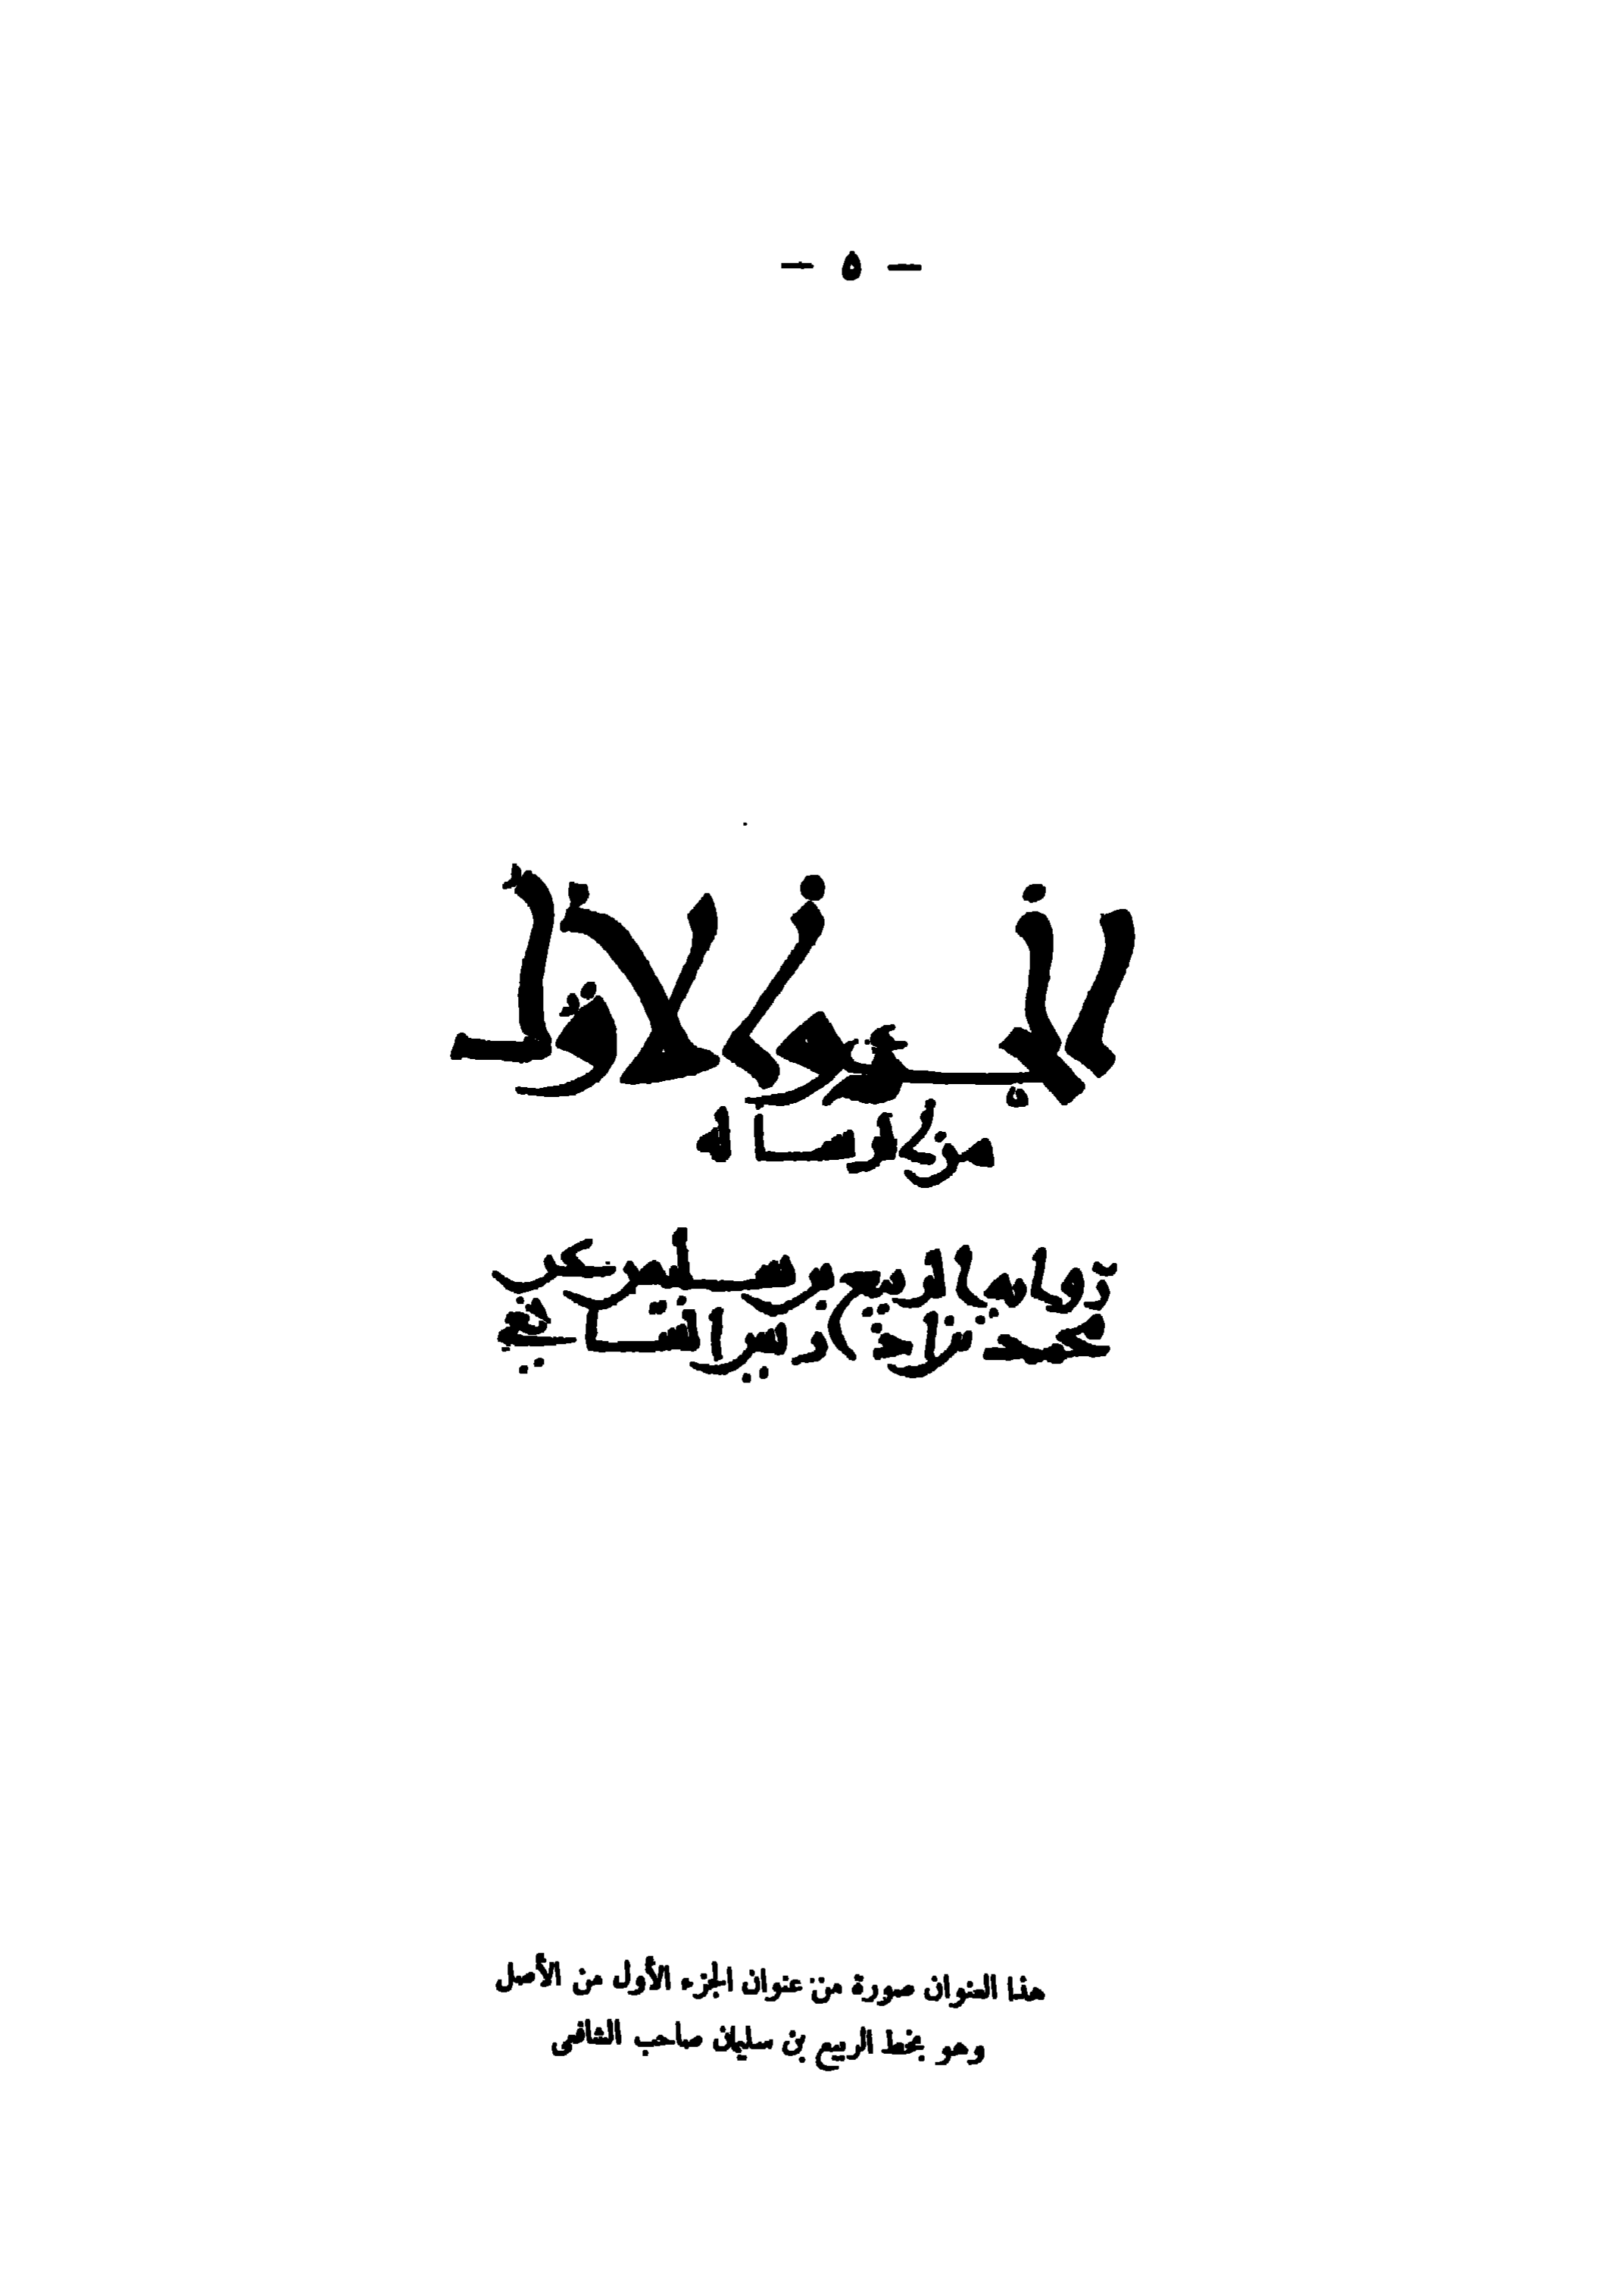 — ٥ —
الجزو الاول
من الرسالة
رواية الربيع بن سليمن عن
محمد بن ادريس الشافعي
هذا العنوان صورة من عنوان الجزء الأول من الأصل
وهو بخط الربيع بن سليمان صاحب الشافعى